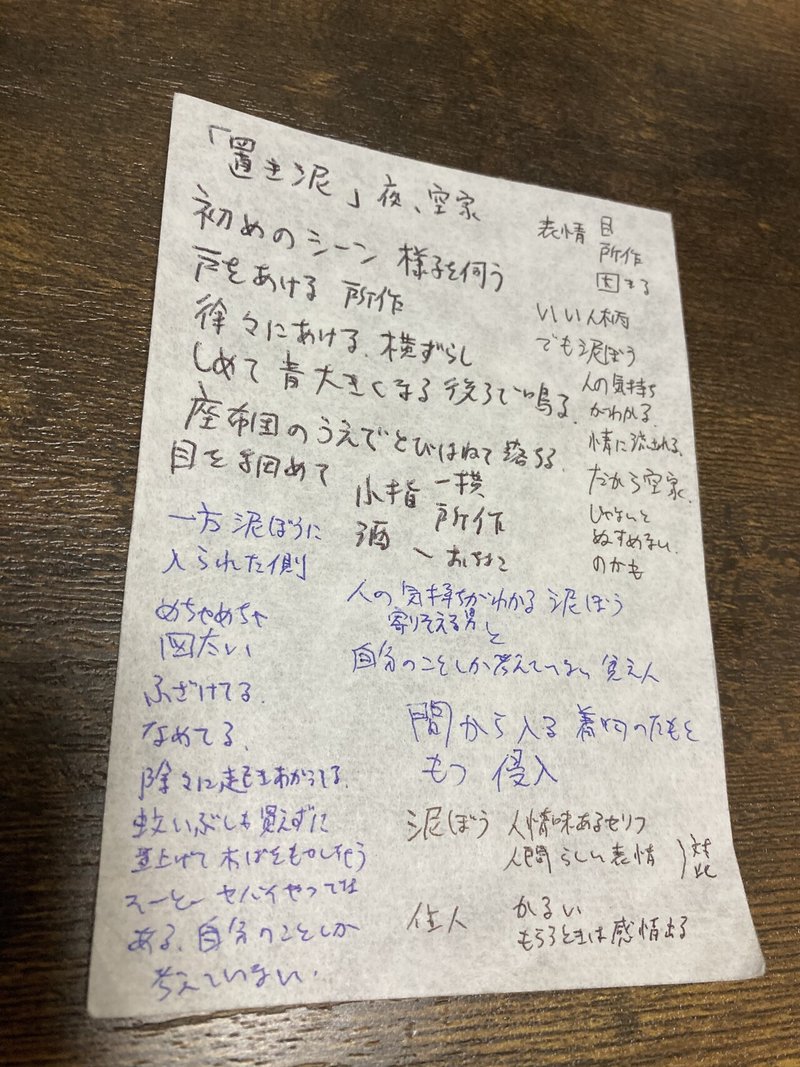 「置き泥」夜、空家
初めのシーン 様子を伺う
戸をあける 所作
徐々にあける、横ずらし
しめて 音大きくなる 後ろで鳴る
座布団のうえでとびはねて 落ちる
目を細めて
小指 一横
所作
酒 〜 おちょこ
表情 目
所作
困る
いい人柄
でも泥ぼう
人の気持ち
がわかる
情に流される、
だから空家、
じゃないと
ぬすめない
のかも
一方 泥ぼうに
入られた側
めちゃめちゃ
図太い
ふざけてる、
なめてる、
除々に起き上がってる、
蚊いぶしも買えずに
畳上げて 木ばをもやしちゃう
ヤバイやつでは
ある、自分のことしか
考えていない、
人の気持ちがわかる 泥ぼう
寄りそえる男 と
自分のことしか考えていない
闇から入る 着物のたもと
もつ 侵入
泥ぼう 人情味あるセリフ
人間らしい表情
対比
住人 かるい
もらうときは感情出る